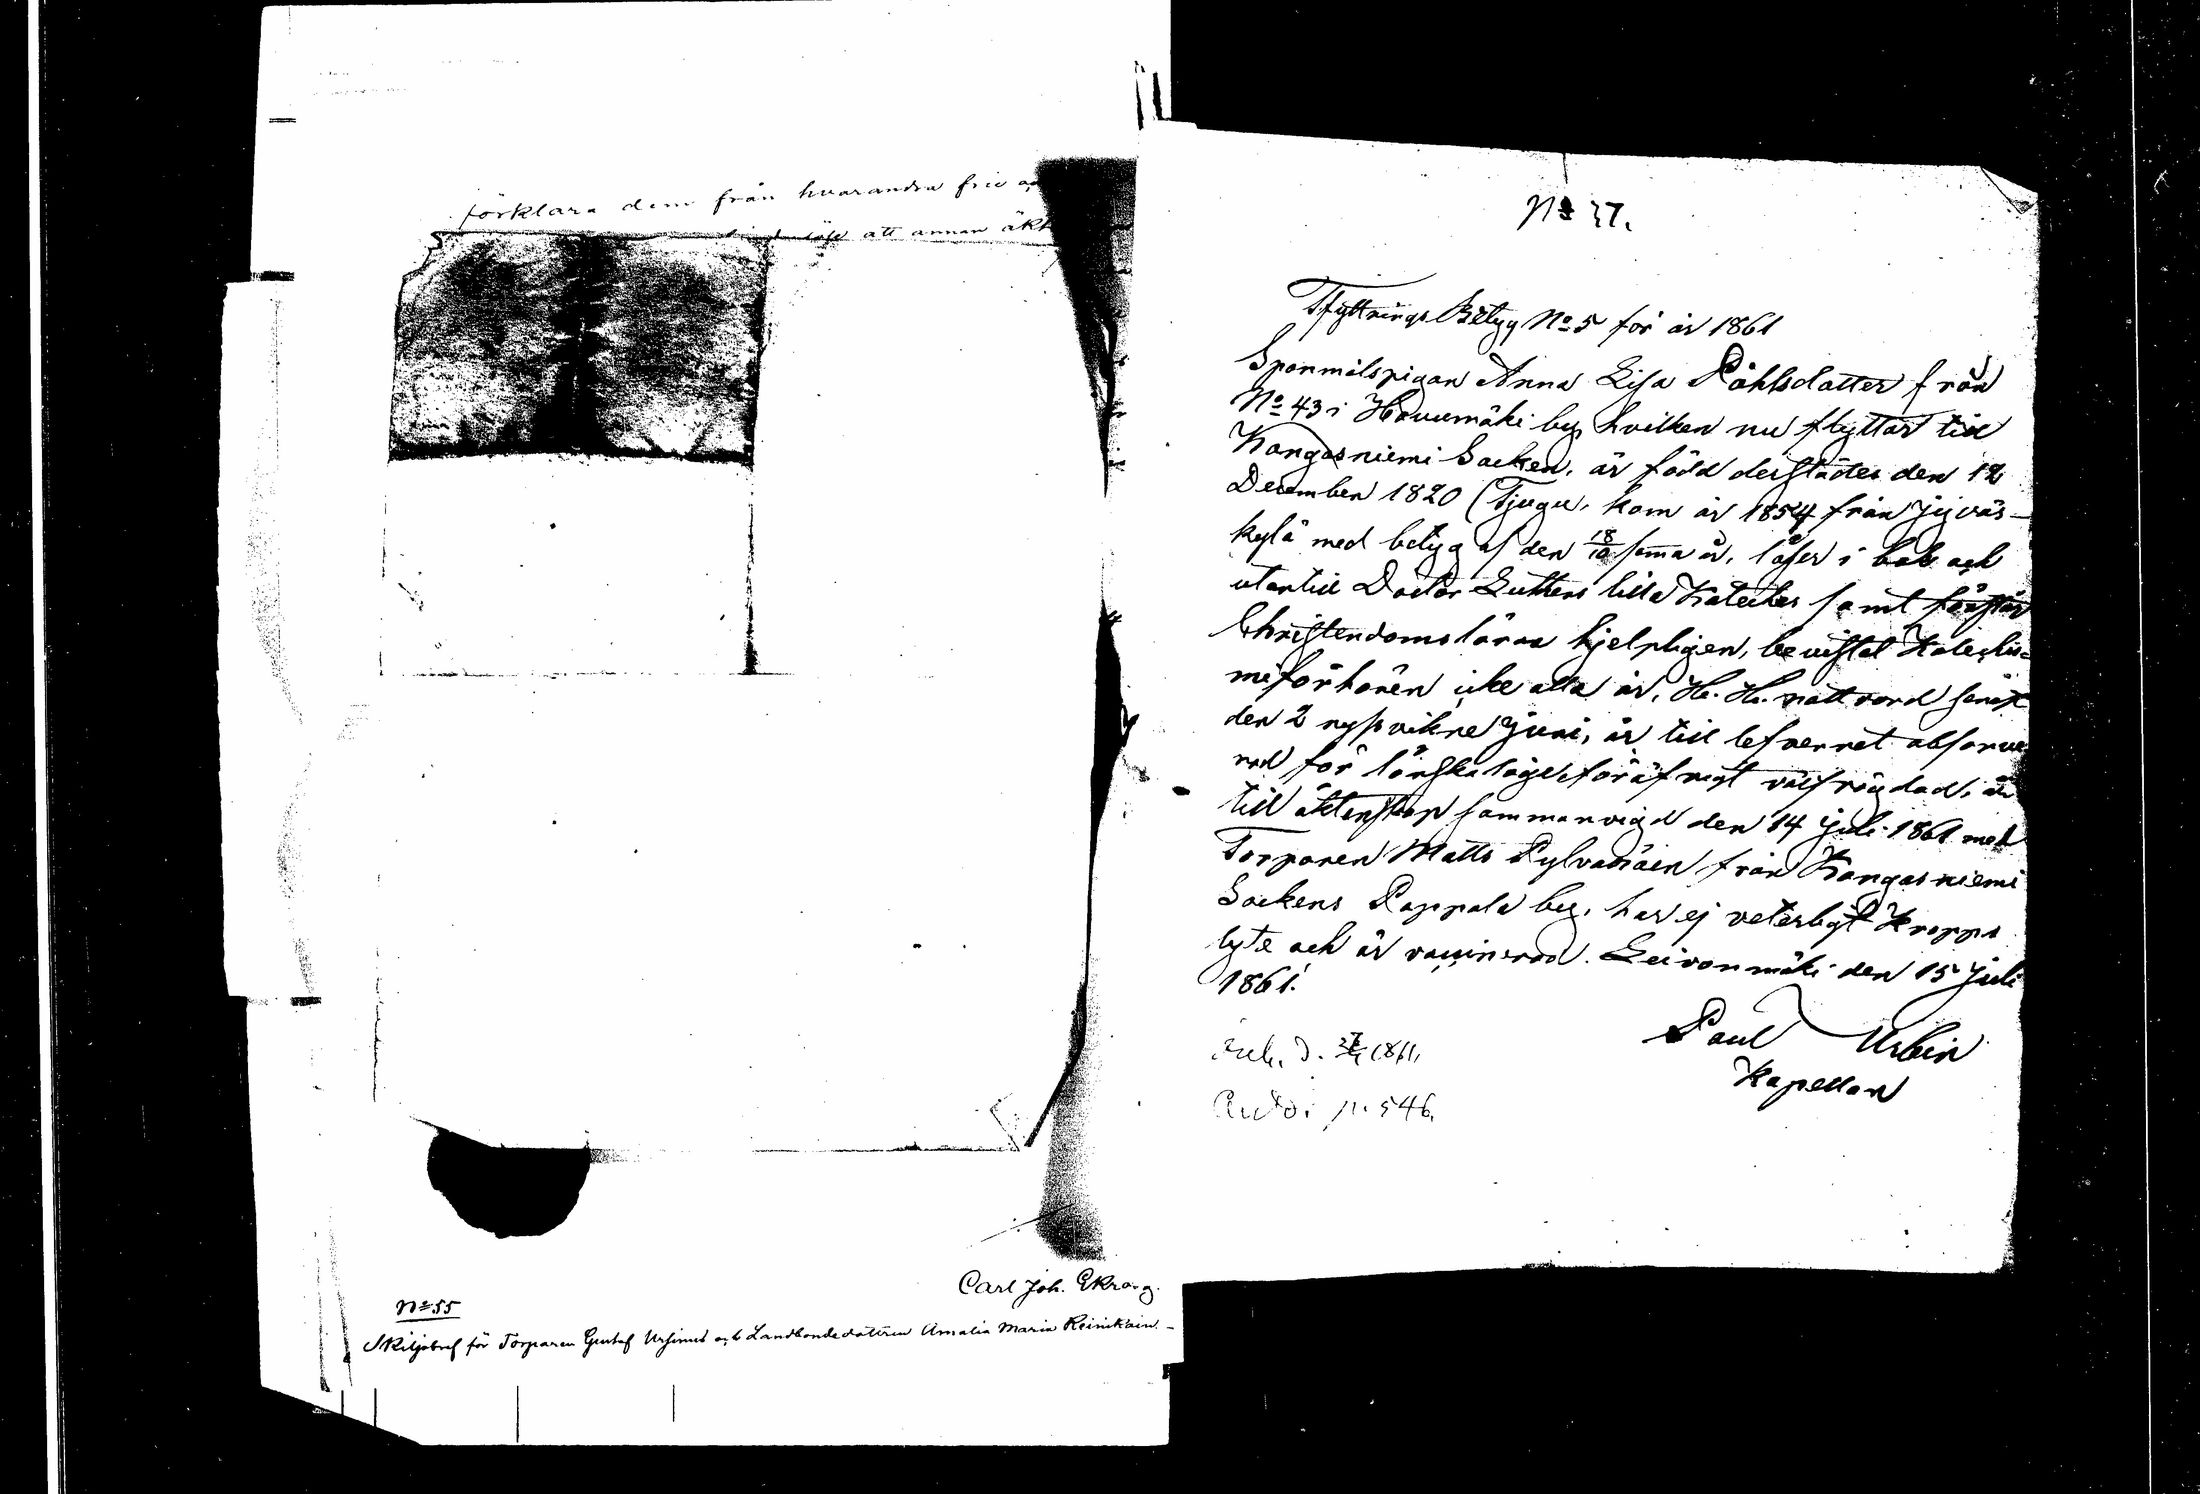 förklara dem från hvarandra frie
att annan äkt
Carl Joh. Ekrang.
No 55
Skiljobref för Torparen Gustaf Ursinus och Landbondedottren Amalia Maria Reinikain.
No 37.
Flyttnings Betyg No 5 för år 1861
Sponmålspigan Anna Lisa Påhlsdotter från
No 43 i Havumäki by, hvilken nu flyttar till
Kangasniemi Socken, är född derstädes den 12
December 1820 (Tjugu, kom år 1854 från Jyväs-
kylä med betyg af den 18/10 samma år, läser i bok och
utantill Doctor Luthers lilla Kateches samt förstår
Christendomsläran hjelpligen, bevistat Katechis-
miförhören icke alla år, H. H. nattvard senast
den 2 nyssvikne Juni, är till lefvernet absolve-
rad för lönskaläge, föröfrigt välfrägdad, är
till äktenskap sammanvigd den 14 Juli 1861 med
Torparen Matts Pylvänäin från Kangasniemi
Sockens Pappala by, har ej veterligt Kropps
lyte och är vaccinerad. Leivonmäki den 15 Juli
1861.
Paul Urbin
Kapellan
p. 546.